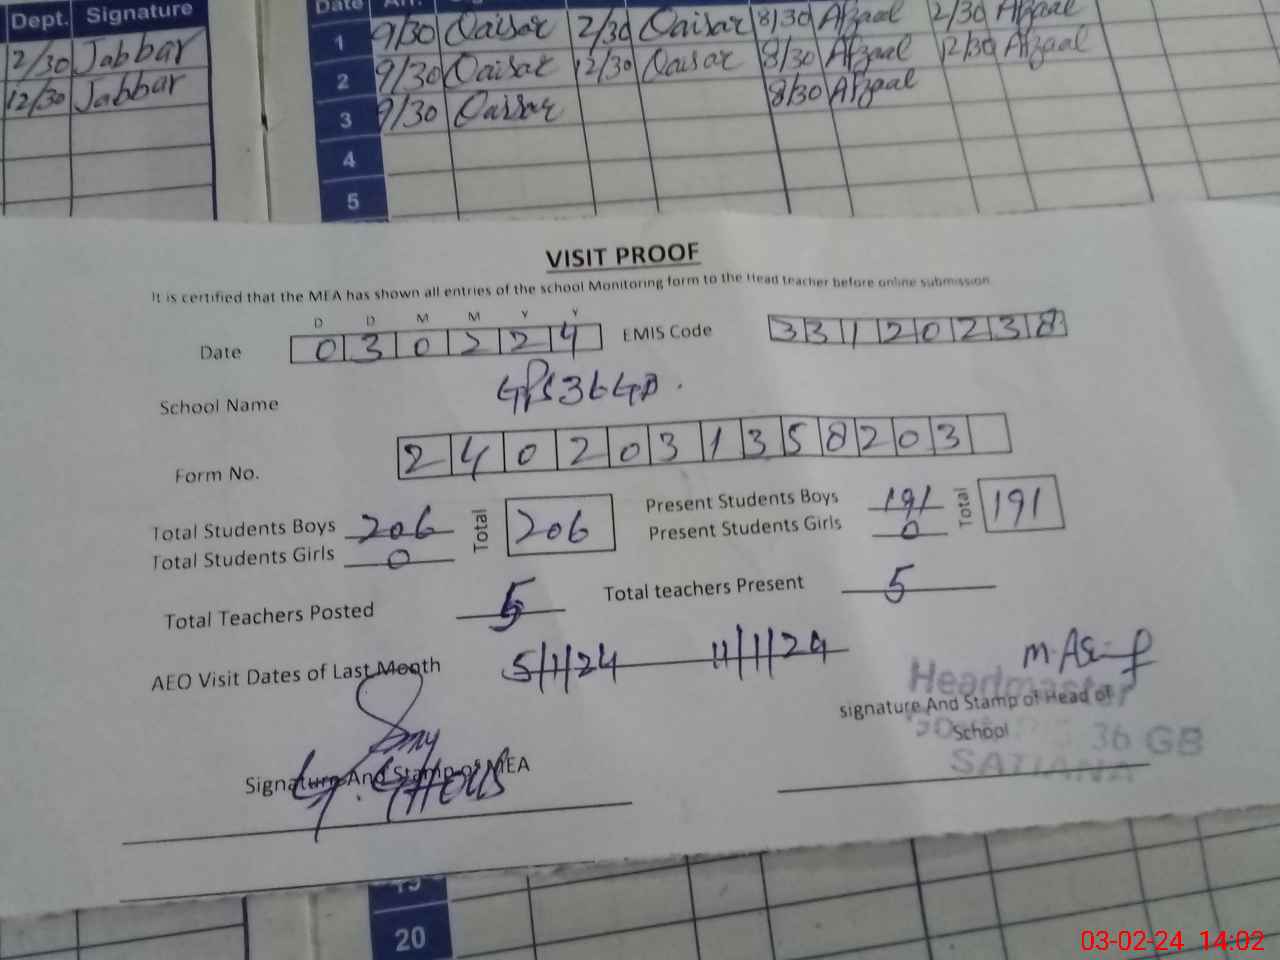 Dept. Signature
2/30 Jabbar
12/30 Jabbar
Date Arr.
1 9/30 Qaisar 2/30 Qaisar 8/30 Afzaal 2/30 Afzaal
2 9/30 Qaisar 12/30 Qaisar 8/30 Afzaal 12/30 Afzaal
3 9/30 Qaisar 8/30 Afzaal
4
5
VISIT PROOF
It is certified that the MEA has shown all entries of the school Monitoring form to the Head teacher before online submission.
D D M M Y Y
Date 0 3 0 2 2 4 EMIS Code 3 3 1 2 0 2 3 8
School Name GPS 36 GB.
Form No. 2 4 0 2 0 3 1 3 5 8 2 0 3
Total Students Boys 206 Total 206 Present Students Boys 191 Total 191
Total Students Girls 0 Present Students Girls 0
Total Teachers Posted 5 Total teachers Present 5
AEO Visit Dates of Last Month 5/1/24 11/1/24
M. Asif
Headmaster
signature And Stamp of Head of
School
36 GB
SATIANA
Signature And Stamp of MEA
19
20
03-02-24 14:02